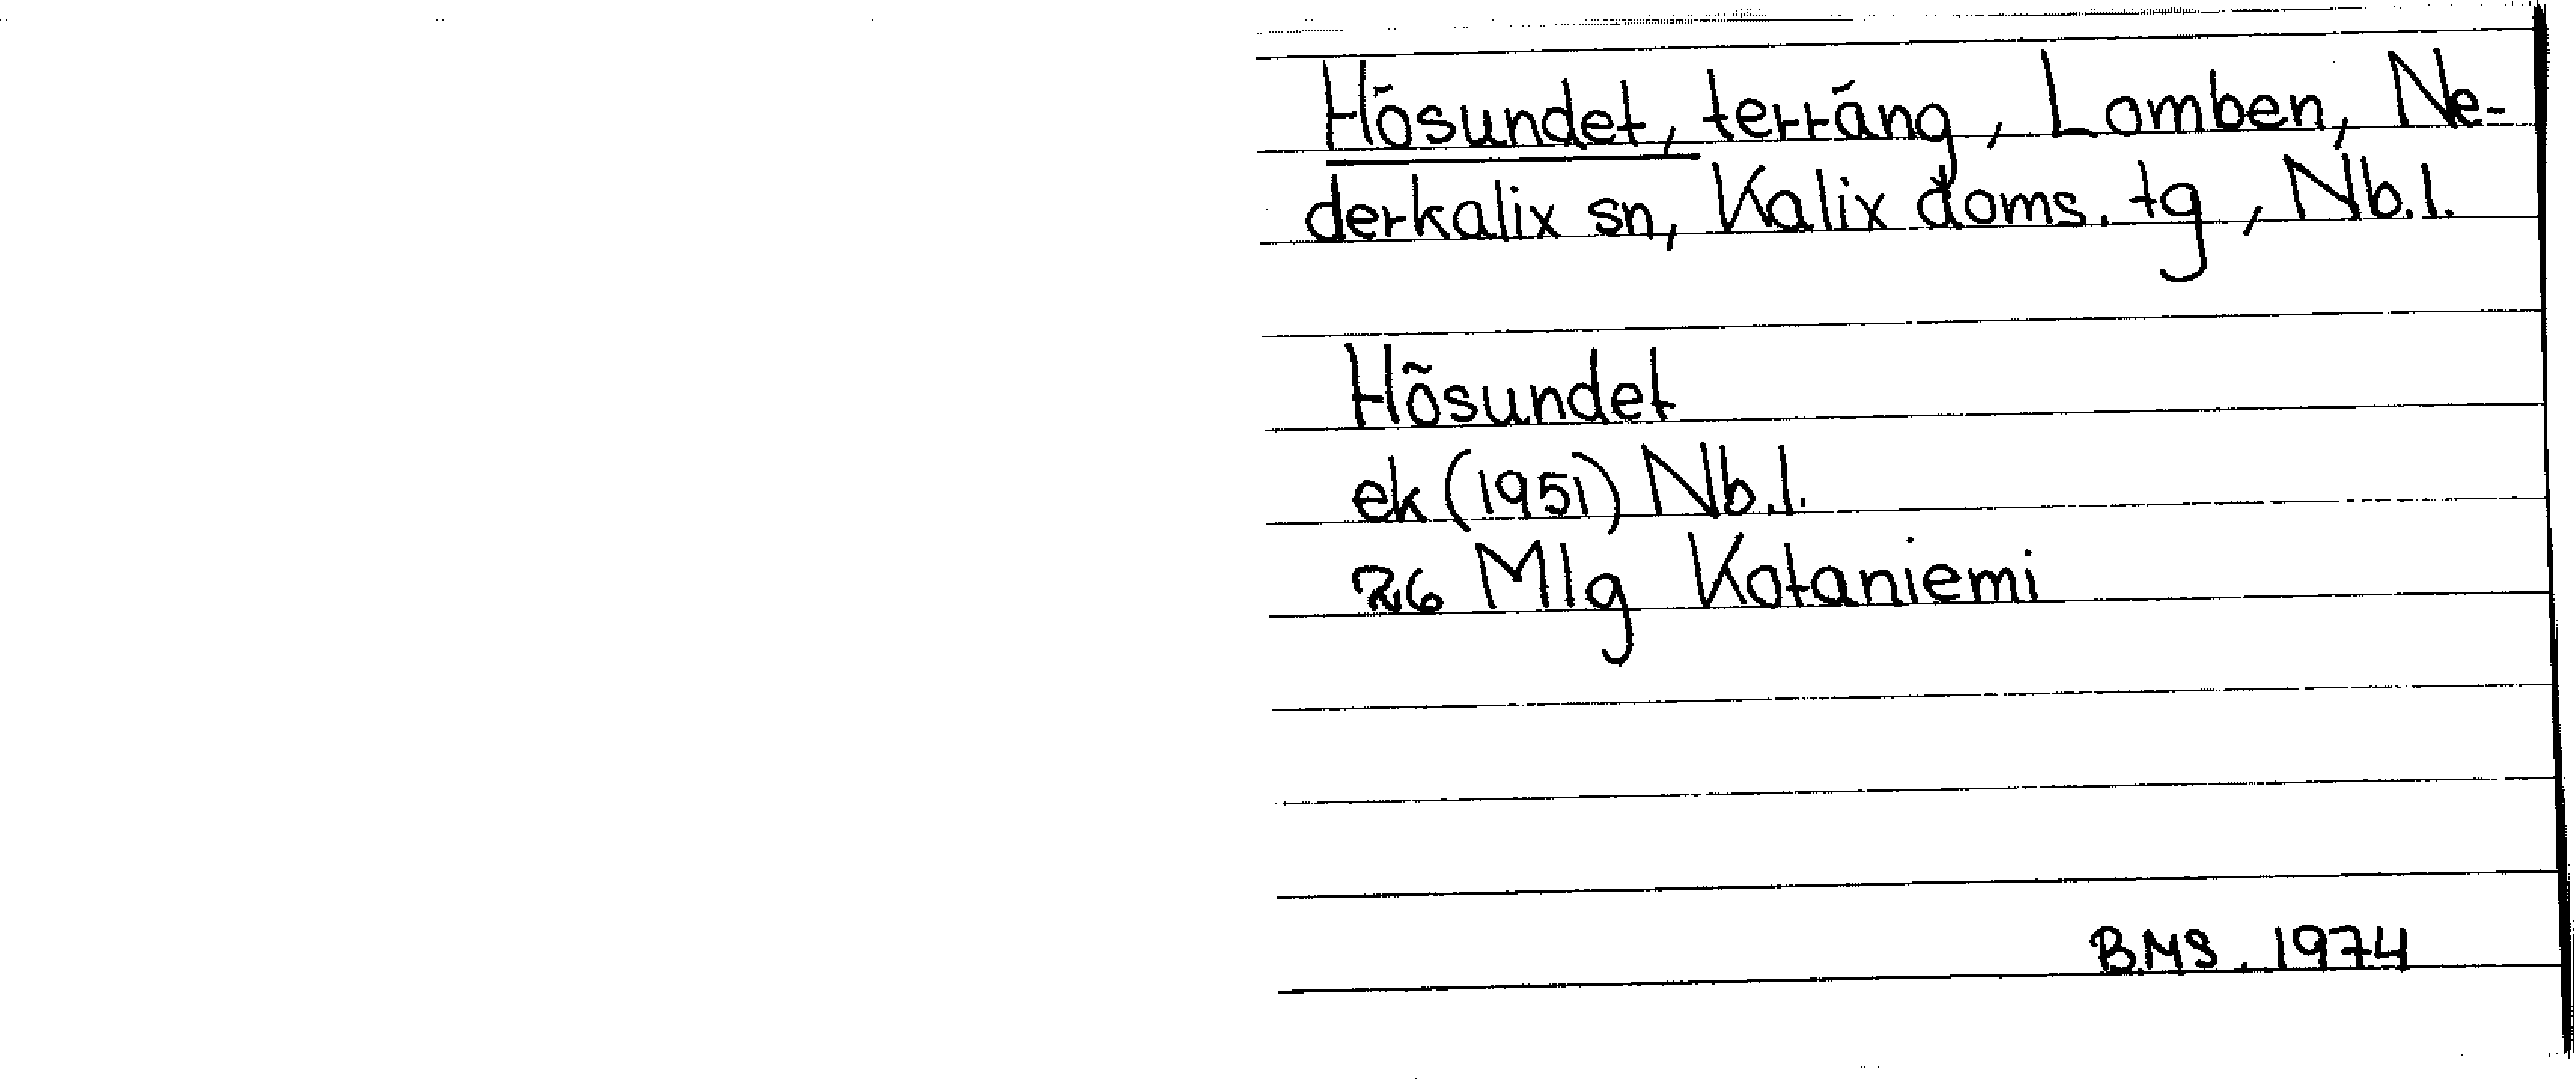 Hösundet, terräng, Lomben, Ne-
derkalix sn, Kalix doms. tg, Nb.l.
Hösundet
ek (1951) Nb.l.
26 Mlg Kotaniemi
B.M.S. 1974